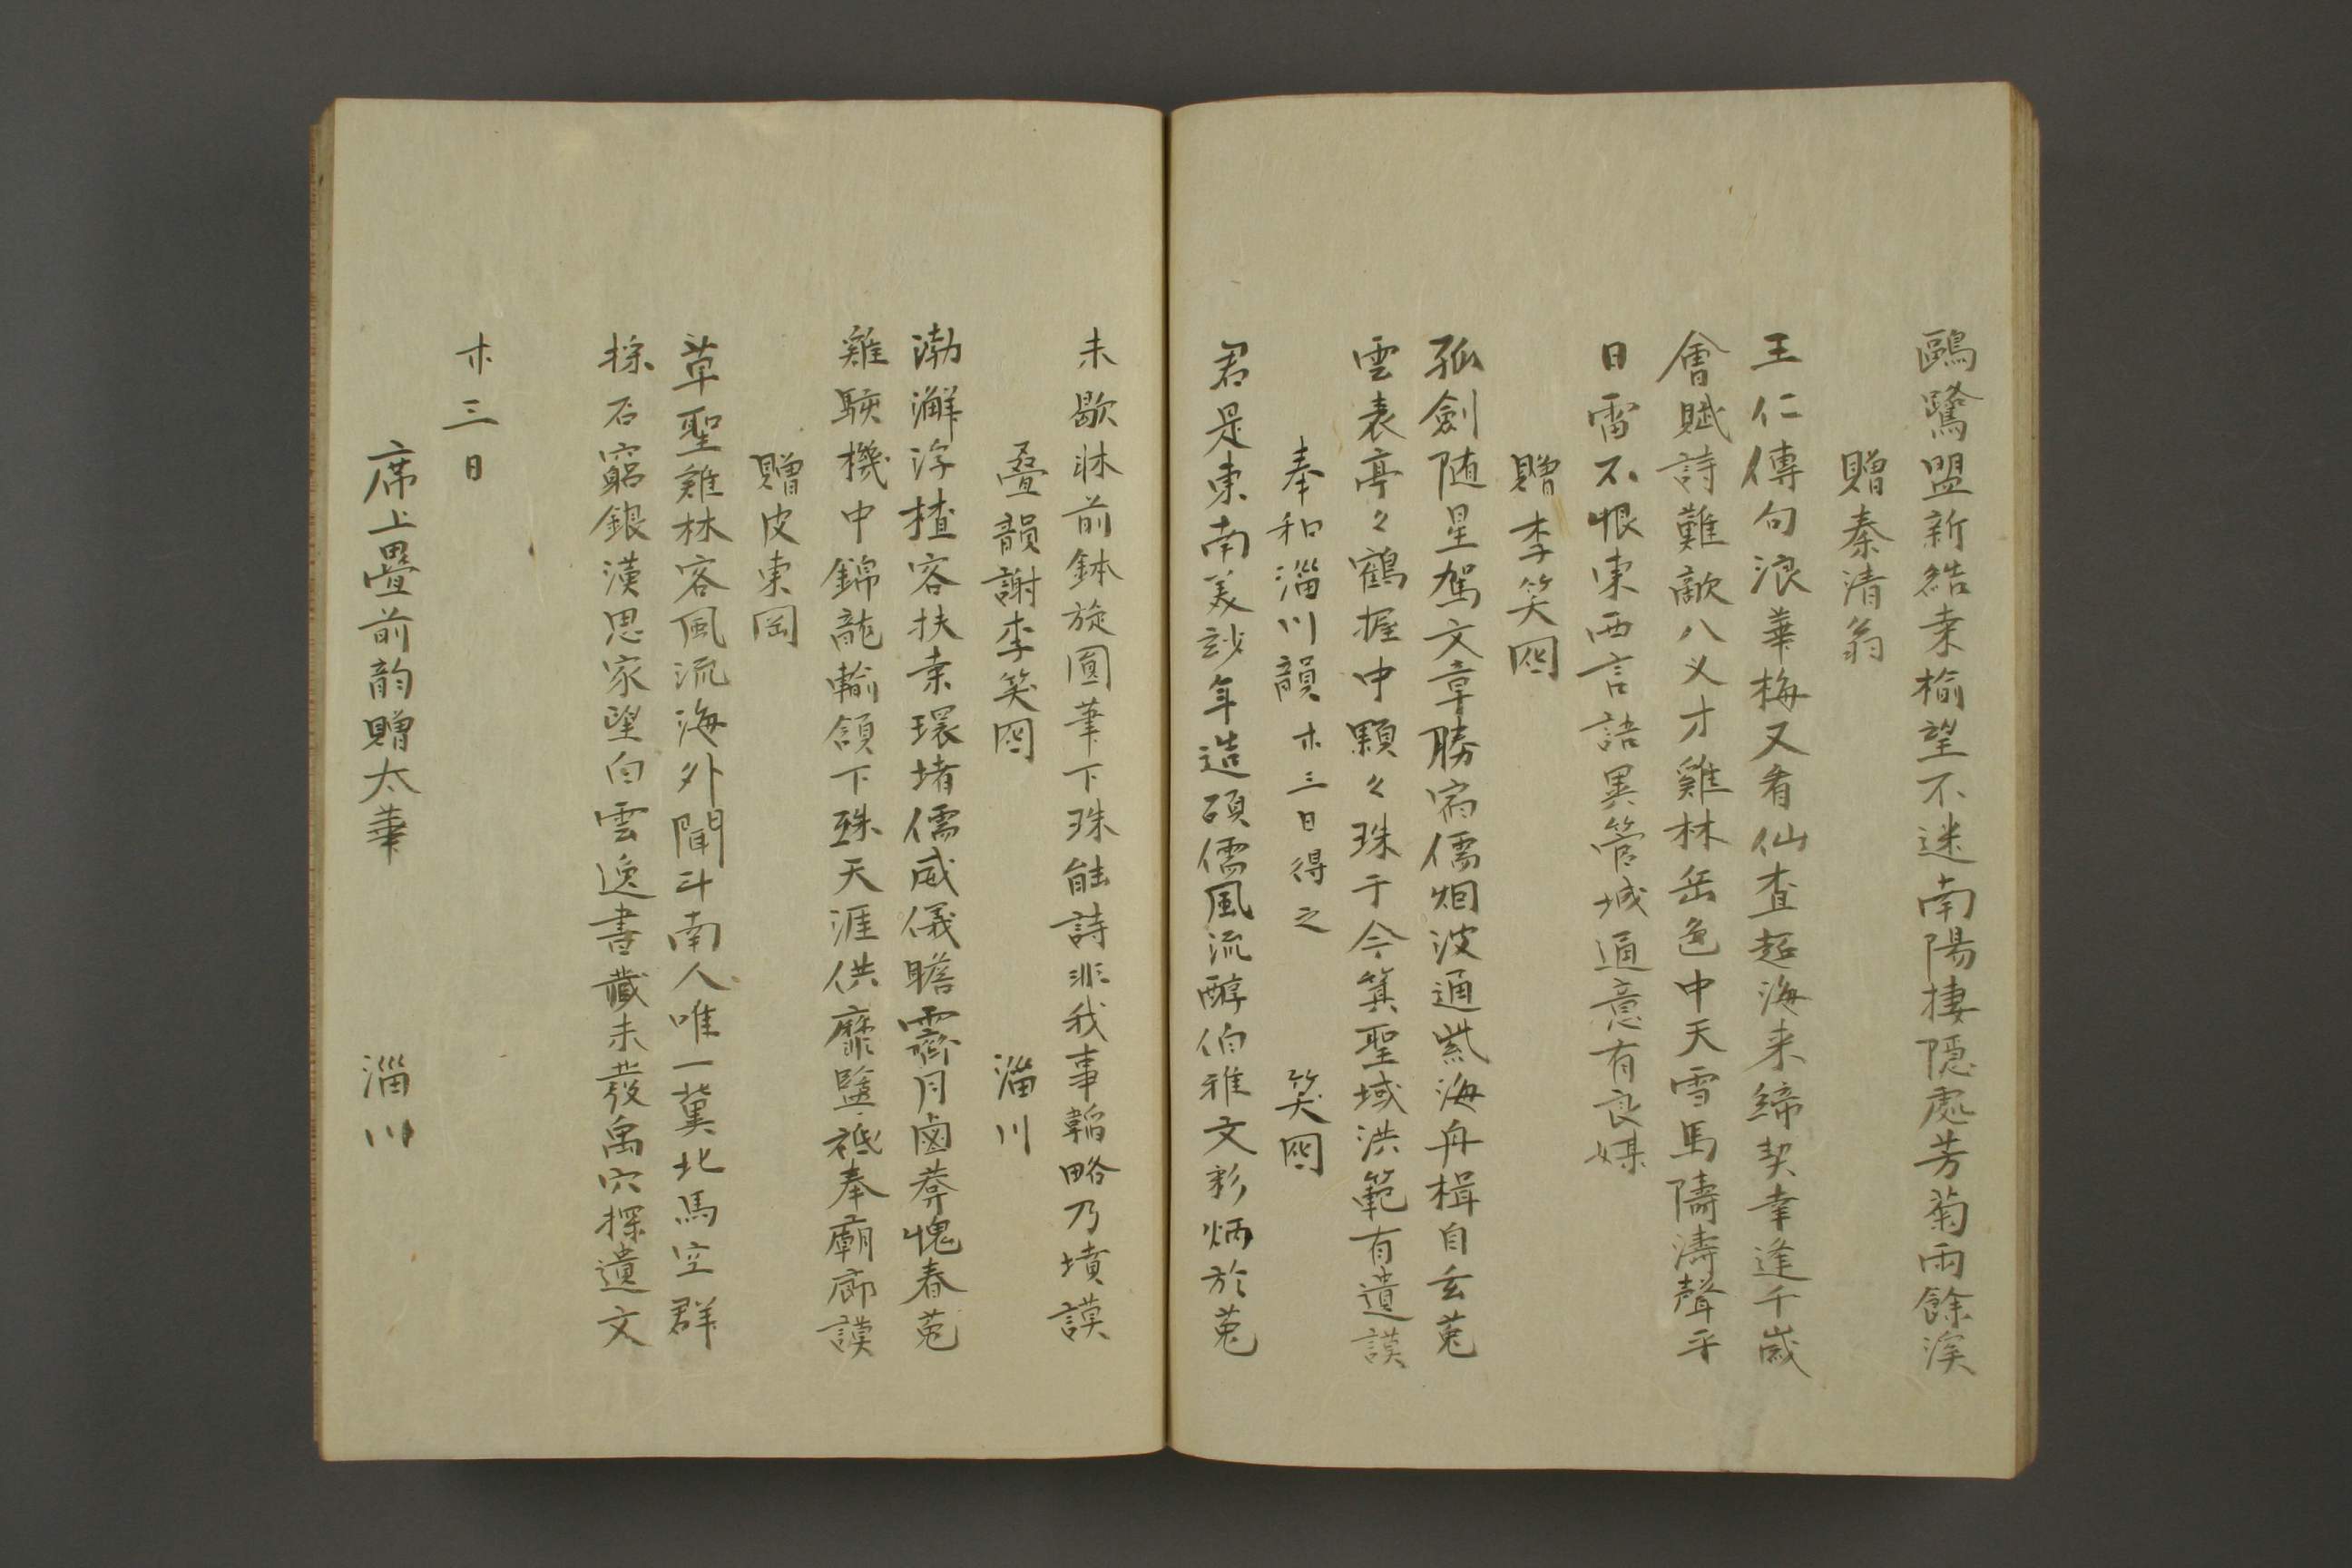 鷗鷺盟新結桑榆望不迷南陽棲隱處芳菊雨餘溪
贈秦清翁
王仁傳句浪華梅又看仙査超海来締契幸逢千歲
會賦詩難敵八乂才雞林岳色中天雪馬隯濤聲平
日雷不恨東西言語異管城通意有良媒
贈李笑囮
孤劍随星駕文章勝宿儒烟波通紫海舟楫自玄菟
雲表亭々鶴握中顆々珠于今箕聖域洪範有遺謨
奉和淄川韻 木三日得之 笑囮
君是東南美妙年造碩儒風流醇伯雅文彩炳於菟
未歇牀前鉢旋圓筆下珠能詩非我事韜略乃墳謨
疊韻謝李笑囮 淄川
渤澥浮楂客扶桑環堵儒威儀瞻霽月鹵莽愧春菟
雞駭機中錦龍輸頷下珠天涯供靡盬祗奉廟廊謨
贈皮東岡
草聖雞林客風流海外聞斗南人唯一冀北馬空群
採石窮銀漢思家望白雲逸書藏未發禹穴探遺文
木三日
席上疊前韵贈太華 淄川